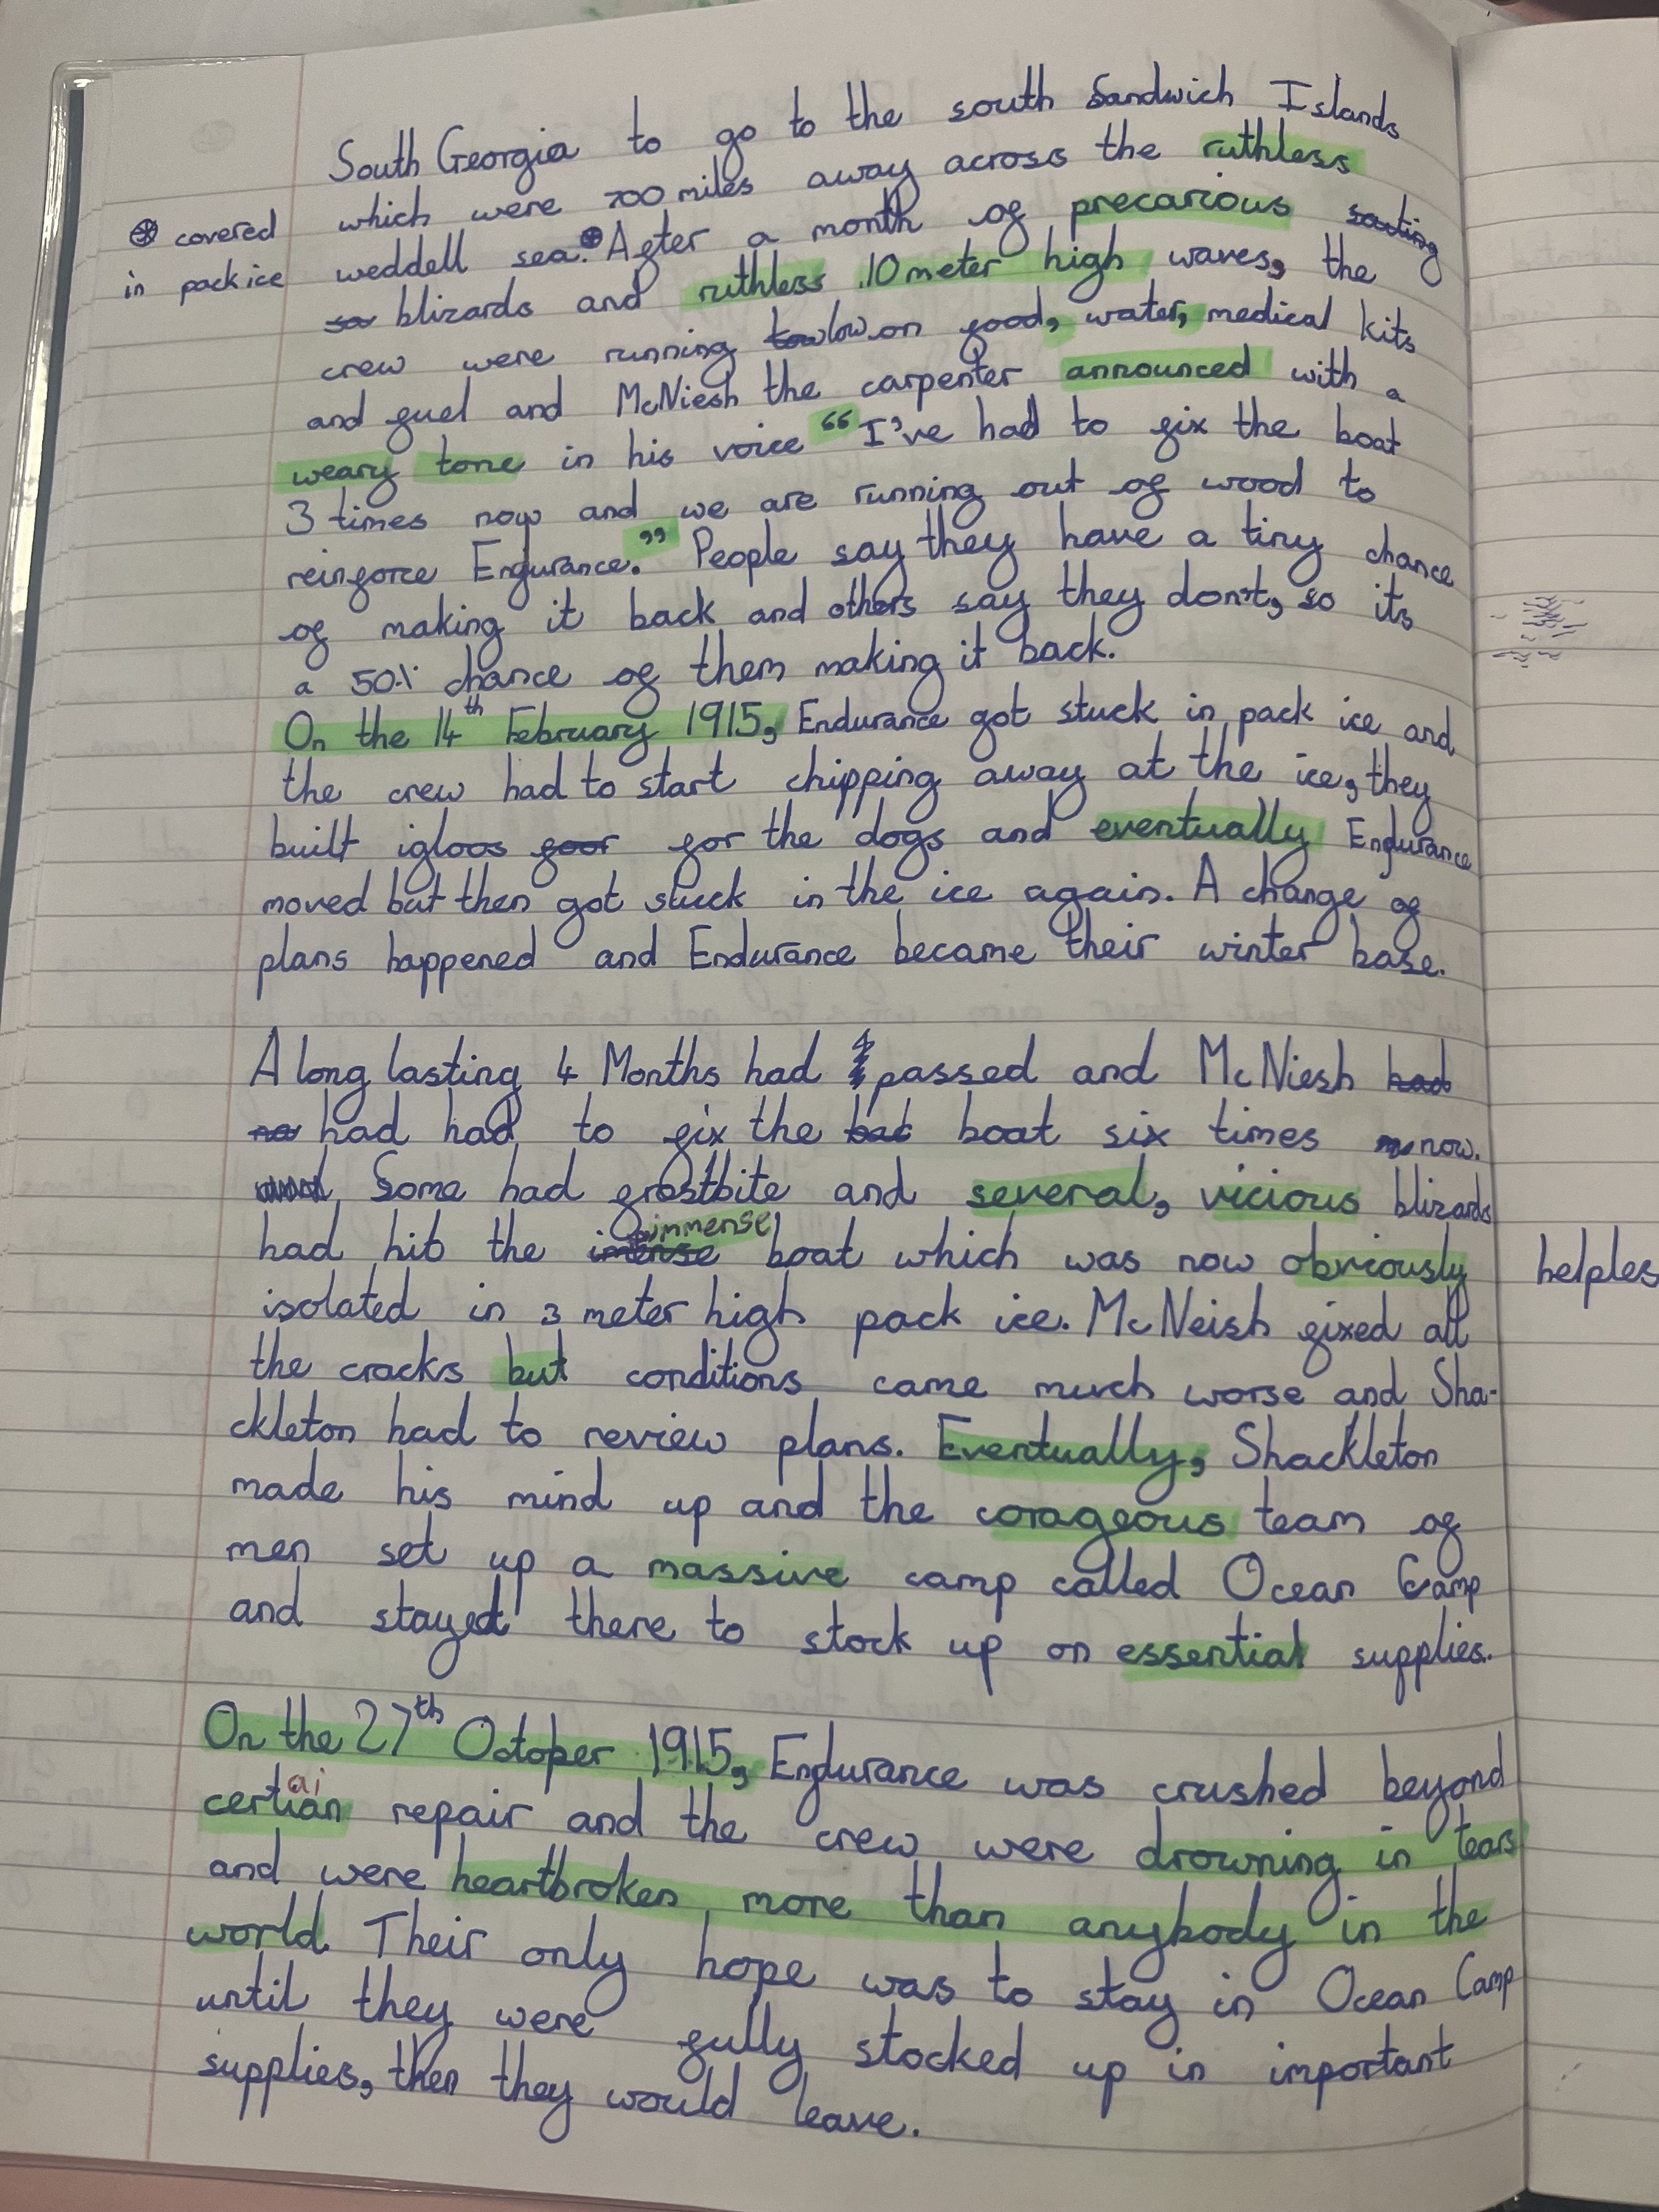 South Georgia to go to the south Sandwich Islands
which were 700 miles away across the ruthless
⊛ covered
in pack ice
weddell sea.⊛ After a month of precarious sailing
so blizards and ruthless 10 meter high waves, the
crew were running low on food, water, medical kits
and fuel and McNiesh the carpenter announced with a
weary tone in his voice “I've had to fix the boat
3 times now and we are running out of wood to
reinforce Endurance.” People say they have a tiny chance
of making it back and others say they don't, so its
a 50% chance of them making it back.
On the 14th February 1915, Endurance got stuck in pack ice and
the crew had to start chipping away at the ice, they
built igloos foor for the dogs and eventually Endurance
moved but then got stuck in the ice again. A change of
plans happened and Endurance became their winter base.
A long lasting 4 Months had passed and McNiesh had
had had to fix the bat boat six times now.
Some had frostbite and several, vicious blizards
immense
had hit the imense boat which was now obviously
helples
isolated in 3 meter high pack ice. McNeish fixed all
the cracks but conditions came much worse and Sha-
ckleton had to review plans. Eventually, Shackleton
made his mind up and the corageous team of
men set up a massive camp called Ocean Camp
and stayed there to stock up on essential supplies.
On the 27th October 1915, Endurance was crushed beyond
ai
certian repair and the crew were drowning in tears
and were heartbroken more than anybody in the
world. Their only hope was to stay in Ocean Camp
until they were fully stocked up in important
supplies, then they would leave.